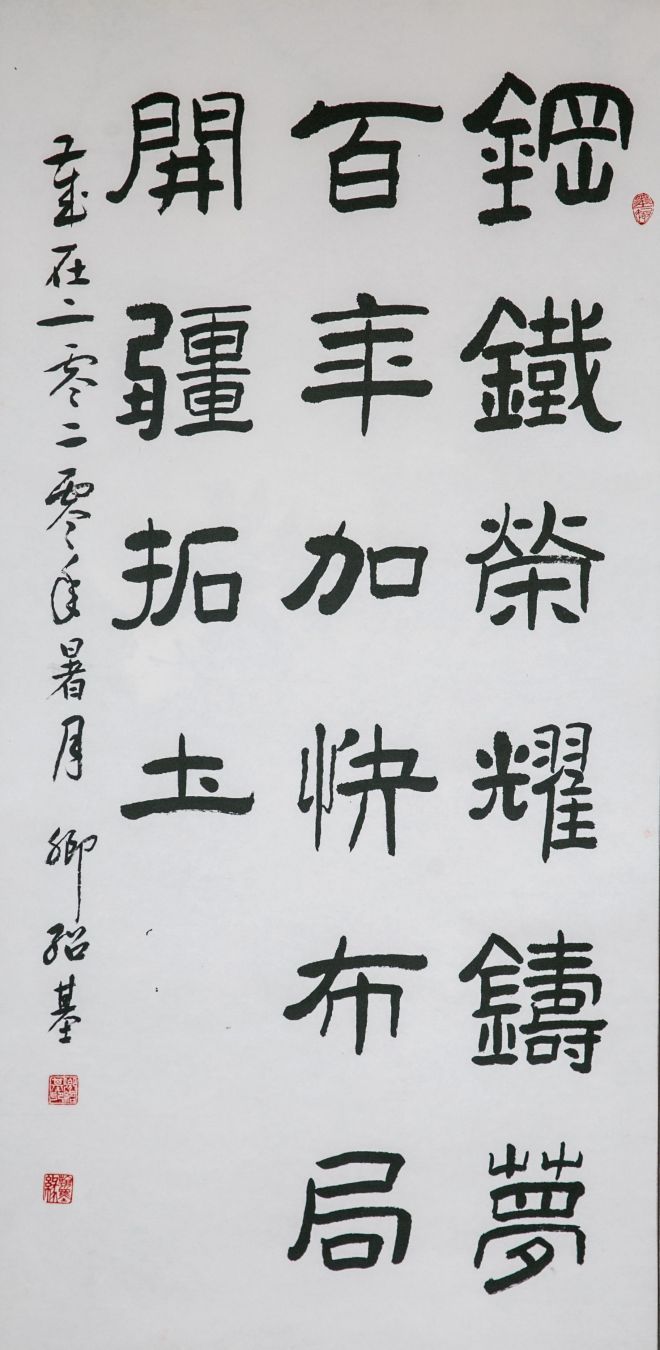 鋼鐵榮耀鑄夢
百年加快布局
開疆拓土
歲在二零二零年暑月 卿紹基